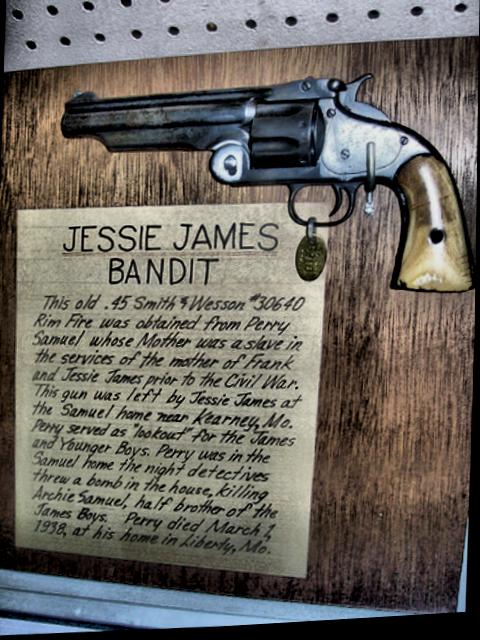 JESSIE JAMES
BANDIT
This old .45 Smith & Wesson #30640
Rim Fire was obtained from Perry
Samuel whose Mother was a slave in
the services of the mother of Frank
and Jessie James prior to the Civil War.
This gun was left by Jessie James at
the Samuel home near Kearney, Mo.
Perry served as "lookout" for the James
and Younger Boys. Perry was in the
Samuel home the night detectives
threw a bomb in the house, killing
Archie Samuel, half brother of the
James Boys. Perry died March 1,
1938, at his home in Liberty, Mo.